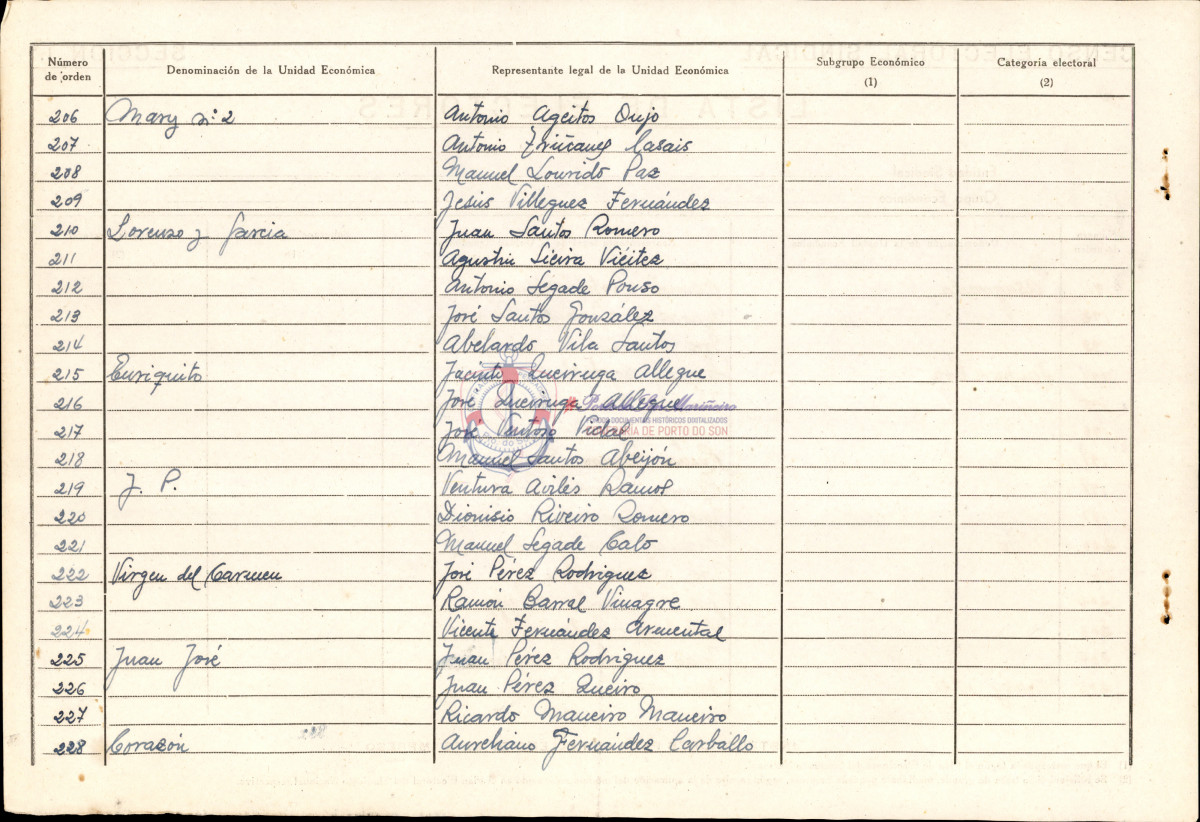 Número de orden Denominación de la Unidad Económica Representante legal de la Unidad Económica Subgrupo Económico (1) Categoría electoral (2)
206 Mary nº 2 Antonio Ageitos Oujo
207 Antonio Casais
208 Manuel Lourido Paz
209 Jesús Villeguez Fernández
210 Lorenzo y Garcia Juan Santos Romero
211 Agustin Sieira Viéitez
212 Antonio Segade Pouso
213 José Santos González
214 Abelardo Vila Santos
215 Enriquito Jacinto Queiruga Allegue
216 José Queiruga Allegue
217 José Ventoso Vidal
218 Manuel Santos Abeijón
219 J. P. Ventura Avilés Ramos
220 Dionisio Riveiro Romero
221 Manuel Segade Calo
222 Virgen del Carmen José Pérez Rodriguez
223 Ramón Barral Vinagre
224 Vicente Fernández Armental
225 Juan José Juan Pérez Rodriguez
226 Juan Pérez Queiro
227 Ricardo Maneiro Maneiro
228 Corazón 228 Aureliano Fernández Carballo
DOCUMENTOS HISTÓRICOS DIXITALIZADOS
DE PORTO DO SON